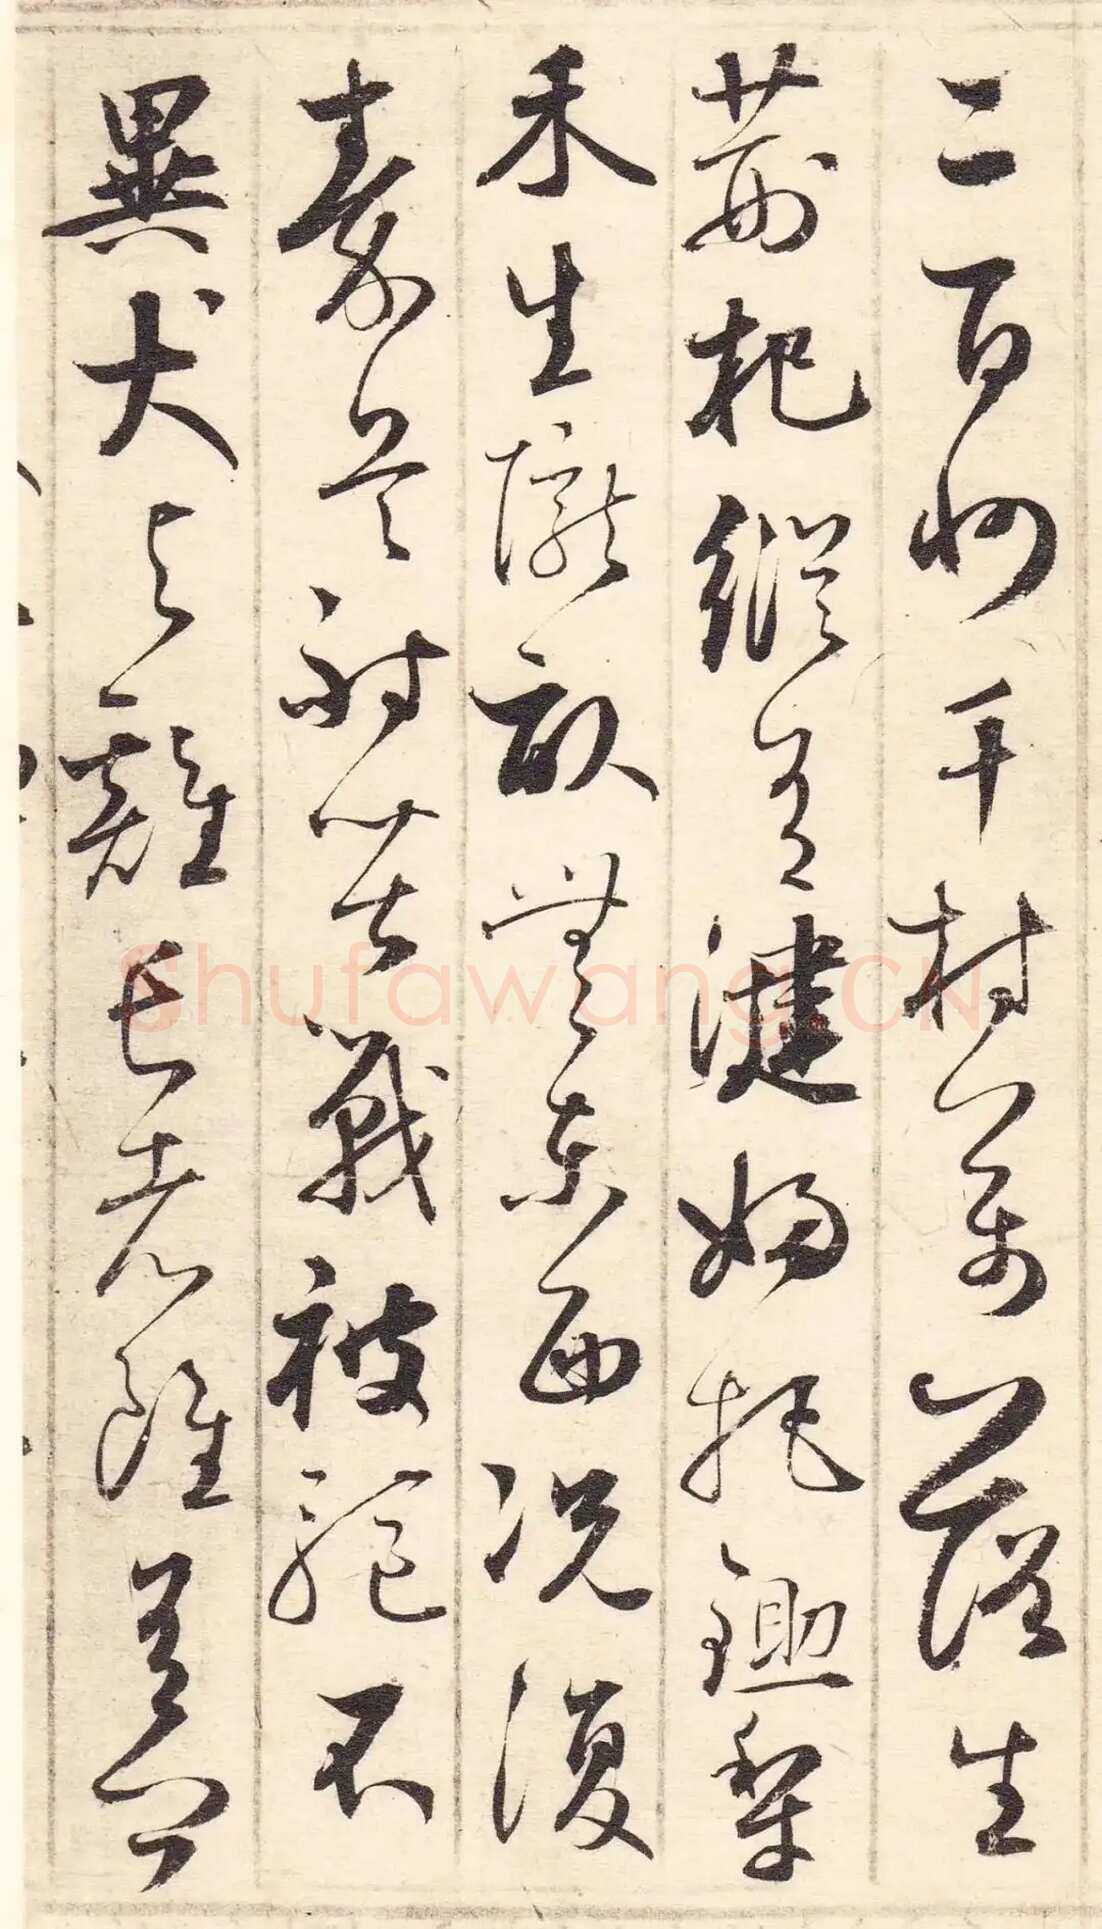 二百州千村萬落生
荊杞縱有健婦把鋤犁
禾生隴畝無東西況復
秦兵耐苦戰被驅不
異犬與雞長者雖有問
Shufawang.CN